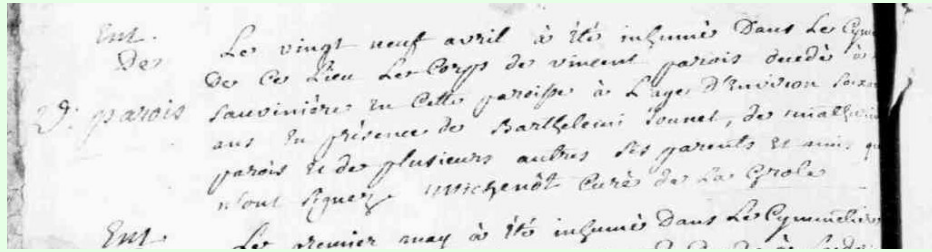 Ent.
De
V. parois
Le vingt neuf avril à été inhumé Dans Le Cyme
De Ce Lieu Le Corps de vincent parois decedé à
Sauvinière En Cette paroisse à L'age D'Environ Soixan
ans En présence de Barthelemi Tounet, de mathurin
parois Et de plusieurs autres Ses parents Et amis qu
n'ont signez Michenôt Curé de La Grole
Ent
Le premier may à été inhumé Dans Le Cymmetiere